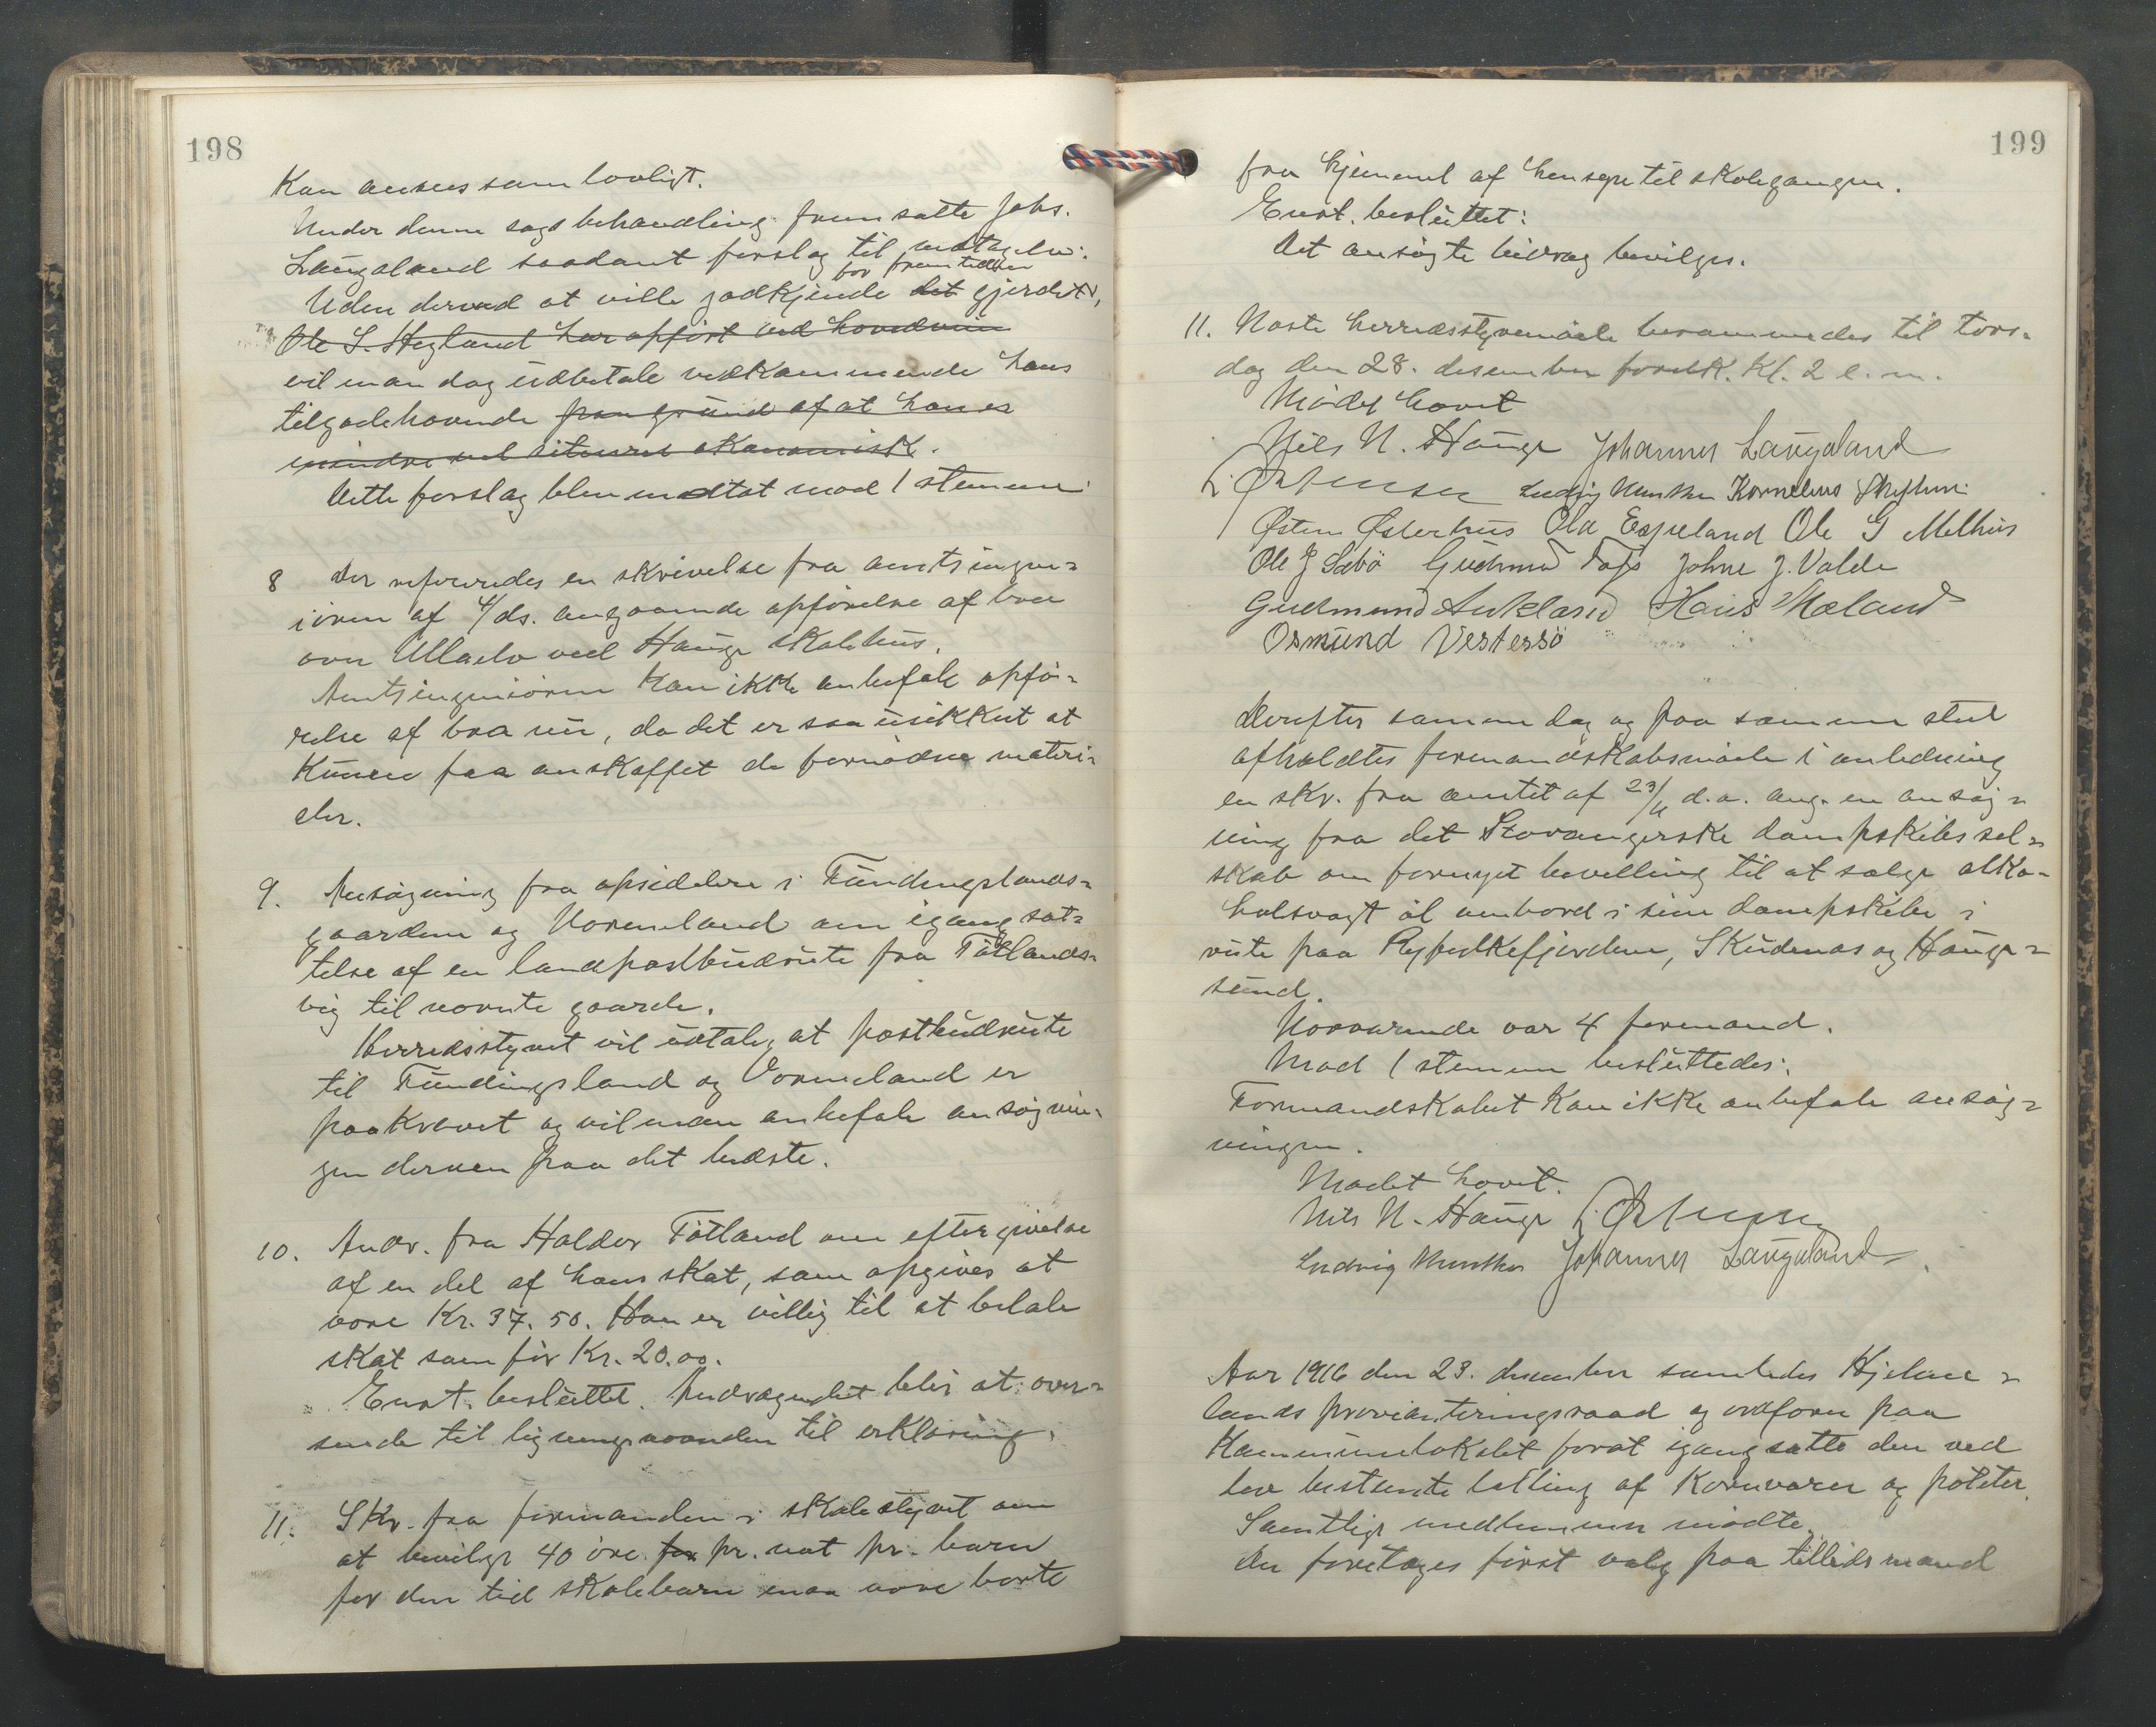 198
Kan ansees som lovligt.
Under denne sags behandling fremsatte Johs.
Laugaland saadant forslag til vedtagelse:
for fremtiden
Uden derved at ville godkjende det gjerdet,
Ole S. Hegland har opført ved hovedveien
vil man dog udbetale vedkommende hans
tilgodehavende paa grund af at han er
mindre vel situeret økonomisk.
Dette forslag blev vedtat mod 1 stemme.
8 Der refereredes en skrivelse fra amtsingen=
iøren af 4/ds. angaaende opførelse af bro
over Ullaelv ved Hauge skolehus.
Amtsingeniøren kan ikke anbefale opfø=
relse af bro nu, da det er saa usikkert at
kunne faa anskaffet de fornødne materi=
eler.
9. Ansøgning fra opsiddere i Fundingslands=
gaardene og Vormeland om igangsæt=
telse af en landpostbudrute fra Føtlands=
vig til nævnte gaarde.
Herredsstyret vil udtale, at postbudrute
til Fundingsland og Vormeland er
paakrævet og vil man anbefale ansøgnin=
gen derom paa det bedste.
10. Andr. fra Haldor Føtland om eftergivelse
af en del af hans skat, som opgives at
være Kr. 37.50. Han er villig til at betale
skat som før Kr. 20.00.
Enst. besluttet. Andragendet blir at over=
sende til ligningsnævnden til erklæring.
11. Skr. fra formanden i skolestyret om
at bevilge 40 øre for pr. nat pr. barn
for den tid skolebarn maa være borte
199
fra hjemmet af hensyn til skolegangen.
Enst. besluttet:
Det ansøgte bidrag bevilges.
11. Næste herredsstyremøde berammedes til tors=
dag den 28. desember førstk. Kl. 2 e.m.
Mødet hævet
Nils N. Hauge Johannes Laugaland
Ludvig Munthe Kornelius
Østen Østerhus Ola Espeland Ole G Melhus
Ole J Sæbø Gudmund Johne J. Valde
Gudmund Hans Mæland
Osmund Vestersø
Derefter samme dag og paa samme sted
afholdtes formandskabsmøde i anledning
en skr. fra amtet af 23/11 d.a. ang. en ansøg=
ning fra det Stavangerske dampskibssel=
skab om fornyet bevilling til at sælge alko=
holsvagt øl ombord i sine dampskibe i
rute paa Ryfylkefjordene, Skudenæs og Hauge=
sund.
Nærværende var 4 formænd.
Mod 1 stemme besluttedes:
Formandskabet kan ikke anbefale ansøg=
ningen.
Mødet hævet.
Nils N. Hauge
Ludvig Munthe Johannes Laugaland
Aar 1916 den 23. desember samledes Hjelme=
lands provianteringsraad og ordfører paa
Kommunelokalet forat igangsætte den ved
lov bestemte telling af kornvarer og poteter.
Samtlige medlemmer mødte.
Der foretages først valg paa tillidsmænd